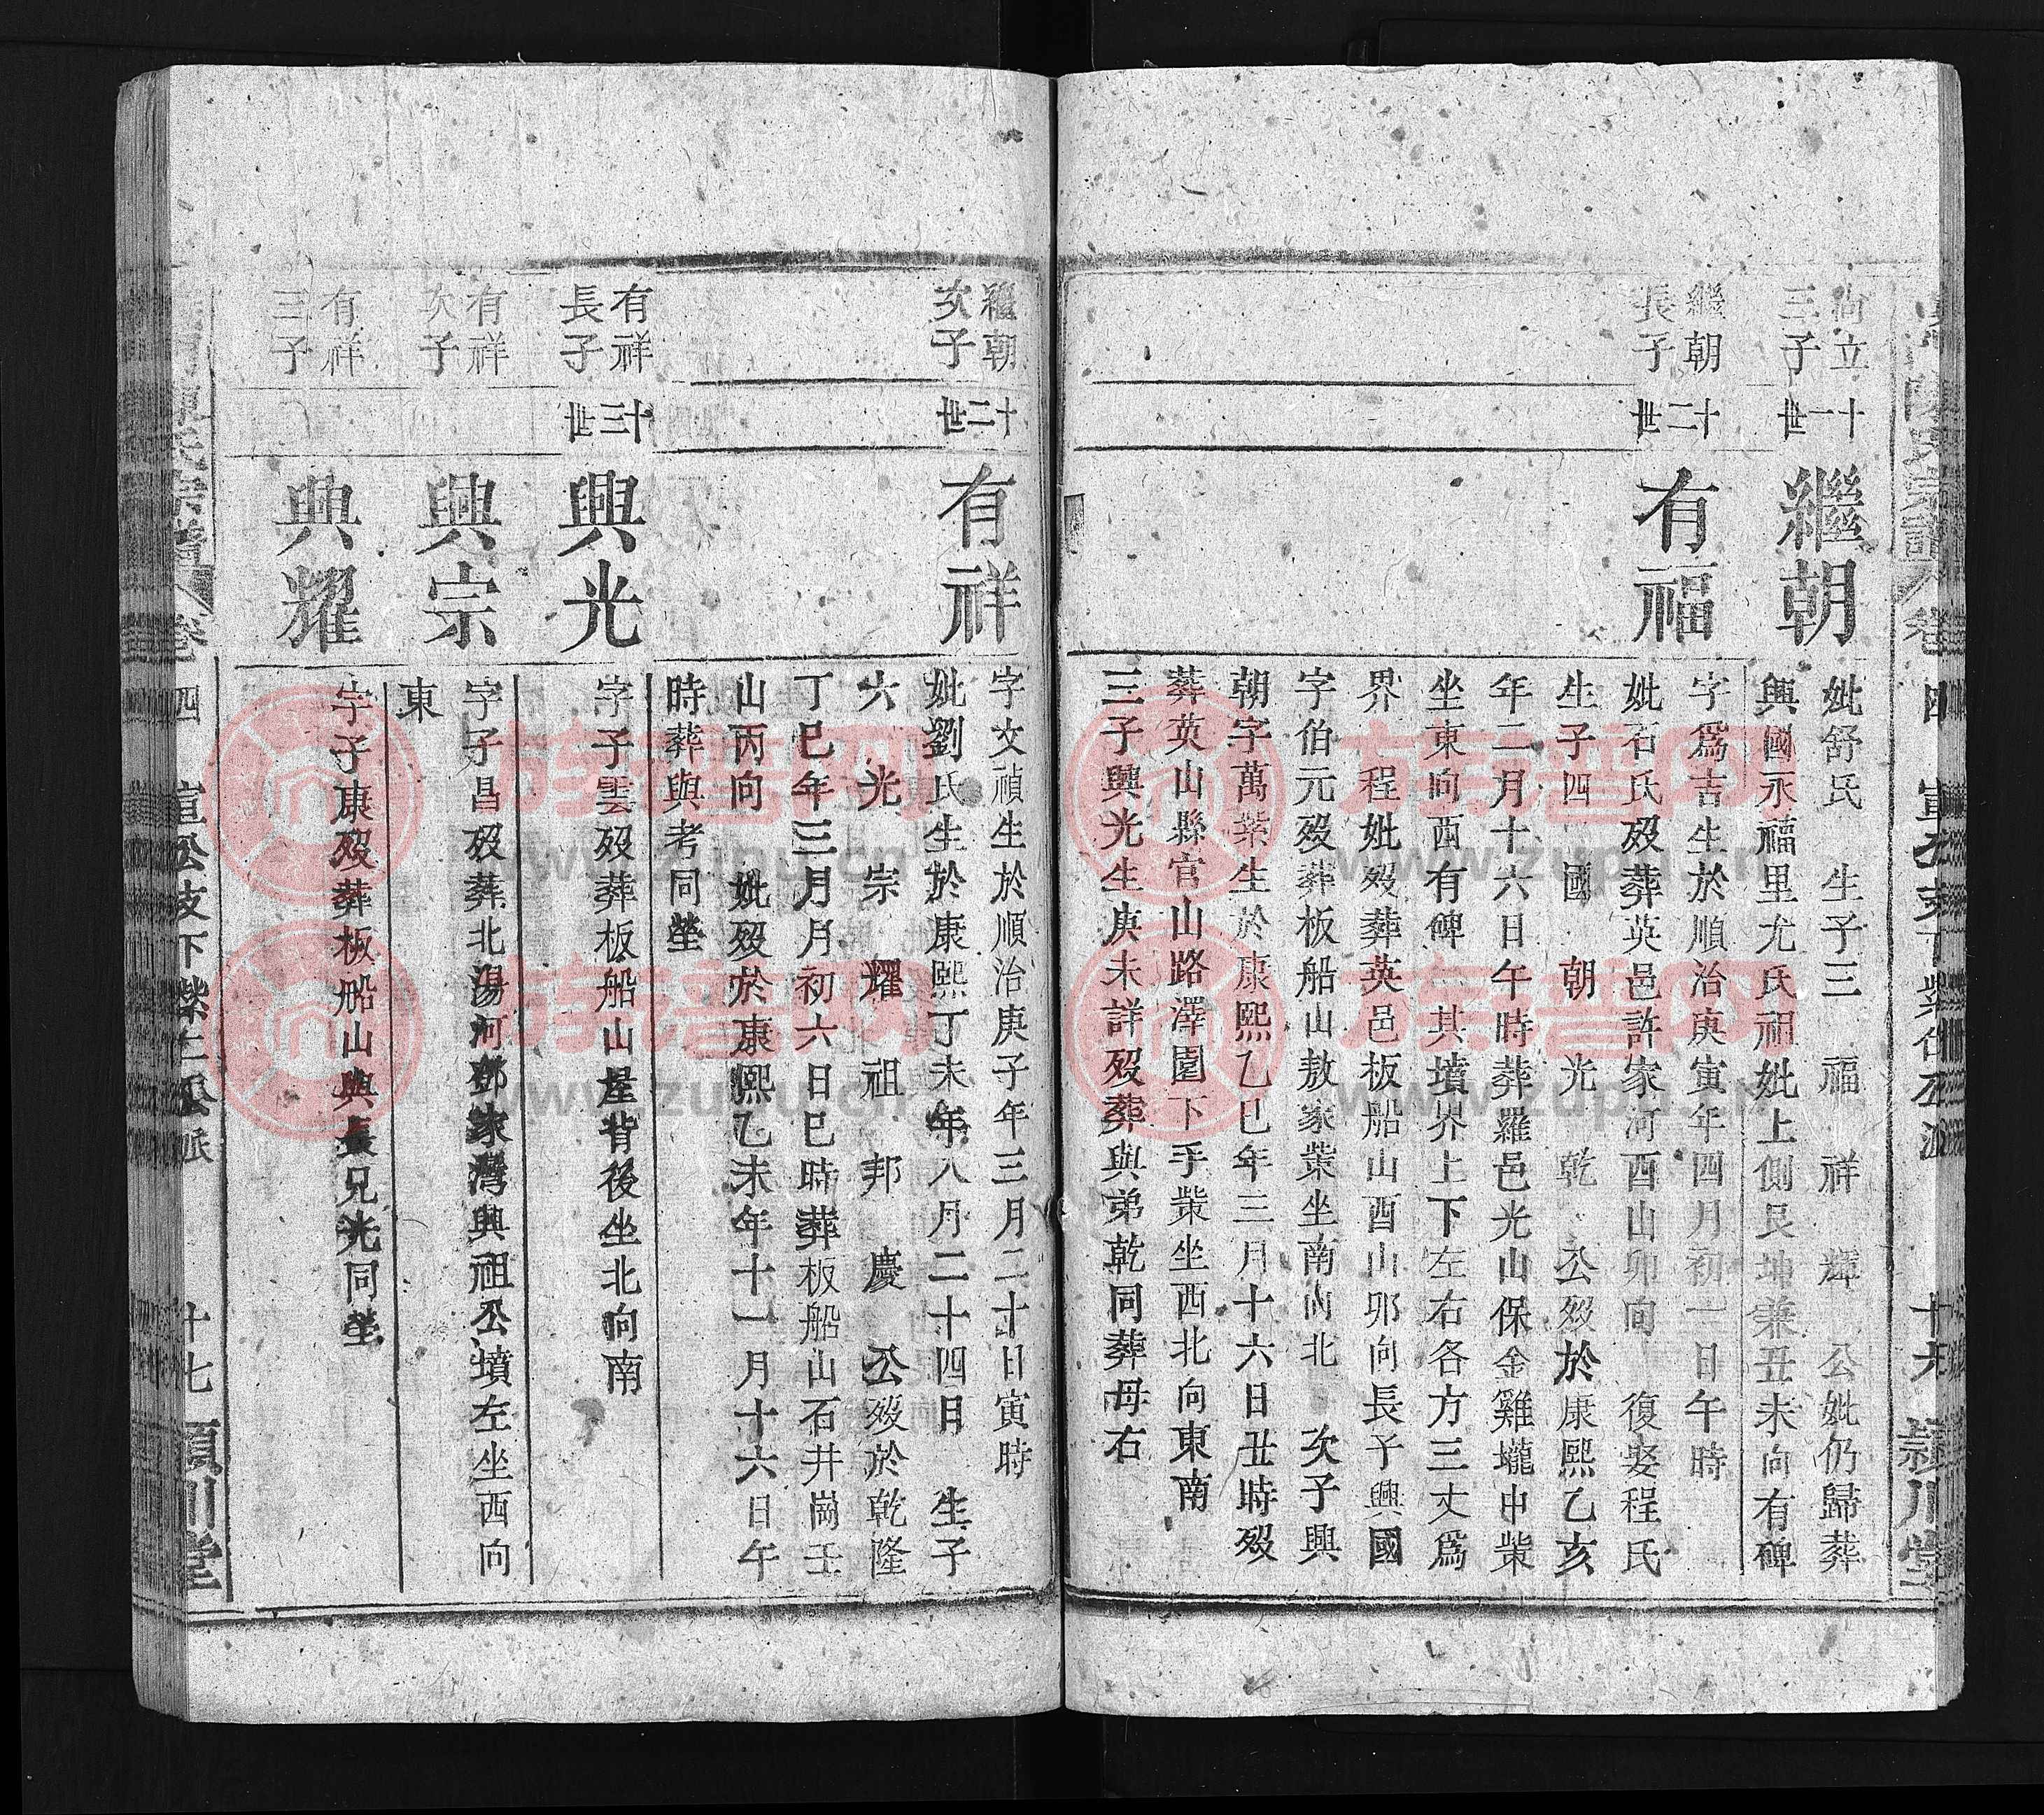 尙立
三子
十一世
繼朝
妣舒氏 生子三 福 祥 輝 公妣仍歸葬
興國永福里尤氏祖妣上側艮坤兼丑未向有碑
繼朝
長子
十二世
有福
字爲吉生於順治庚寅年四月初一日午時
妣石氏歿葬英邑許家河酉山卯向 復娶程氏
生子四 國 朝 光 乾 公歿於康熙乙亥
年二月十六日午時葬羅邑光山保金雞壠中業
坐東向酉有碑 其墳界上下左右各方三丈爲
界 程妣歿葬英邑板船山酉山卯向長子興國
字伯元歿葬板船山敖家業坐南向北 次子興
朝字萬紫生於康熙乙巳年三月十六日丑時歿
葬英山縣官山路澤園下手業坐西北向東南
三子興光生庚未詳歿葬與弟乾同葬母右
卷四
十六
繼朝
次子
十二世
有祥
字文禎生於順治庚子年三月二十日寅時
妣劉氏生於康熙丁未年八月二十四日 生子
六 光 宗 耀 祖 邦 慶 公歿於乾隆
丁巳年三月月初六日巳時葬板船山石井崗壬
山丙向 妣歿於康熙乙未年十一月十六日午
時葬與考同塋
有祥
長子
十三世
興光
字子雲歿葬板船山屋背後坐北向南
有祥
次子
興宗
字子昌歿葬北湯河鄧家灣興祖公墳左坐西向
東
有祥
三子
興耀
字子康歿葬板船山與長兄光同塋
陳氏宗譜
卷四
宣公支下紫仁公派
十七
潁川堂
族譜网
www.zupu.cn
族譜网
www.zupu.cn
族譜网
www.zupu.cn
族譜网
www.zupu.cn